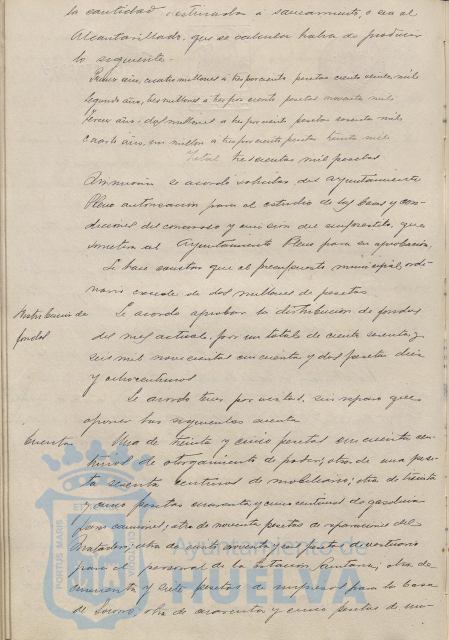 la cantidad destinada á saneamiento, o sea al
Alcantarillado, que se calcula habrá de producir
lo siguiente.
Primer año, cuatro millones a tres por ciento pesetas ciento veinte mil
Segundo año, tres millones a tres por ciento pesetas noventa mil
Tercer año: dos millones a tres por ciento pesetas sesenta mil
Cuarto año, un millon a tres por ciento pesetas treinta mil
Total trescientas mil pesetas
se acordó solicitar del Ayuntamiento
Pleno autorizacion para el estudio de las bases y con-
diciones del concurso y emision del emprestito, que
someterá al Ayuntamiento Pleno para su aprobación,
Se hace constar que el presupuesto municipal ordi-
nario excede de dos millones de pesetas
Distribucion de
fondos
Se acordo aprobar la distribucion de fondos
del mes actual, por un total de ciento sesenta y
seis mil novecientas cincuenta y dos pesetas diez
y ocho centimos
Se acordo tener por vistas, sin reparo que
oponer las siguientes cuentas
Cuentas
Una de treinta y cinco pesetas cincuenta cen-
timos de otorgamiento de poder; otra de una pese-
ta sesenta centimos de mobiliario; otra de treinta
y cinco pesetas cuarenta y cinco centimos de gasolina
para camiones; otra de noventa pesetas de reparaciones del
Matadero; otra de ciento noventa y pesetas de vestuario
para el personal de la Estacion Sanitaria; otra de
y siete pesetas de impresos para la Casa
de Socorro, otra de cuarenta y cinco pesetas de
Ayuntamiento de
HUELVA
PORTUS MARIS